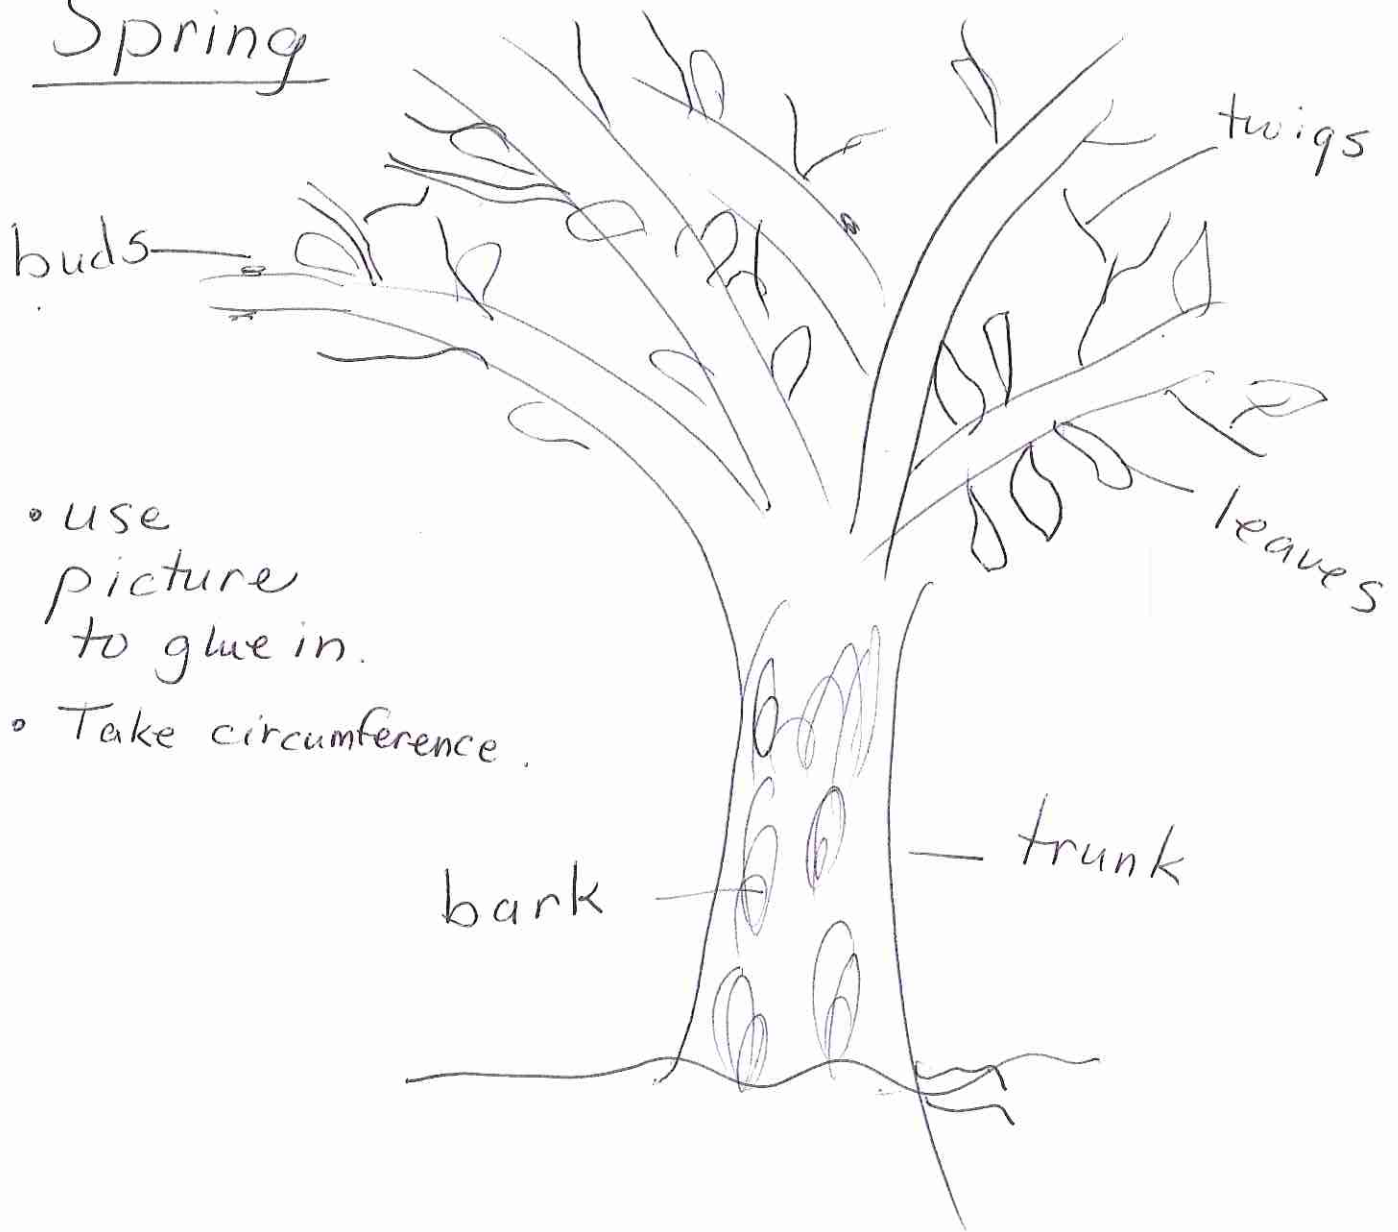 Spring
twigs
buds
leaves
• use
picture
to glue in.
• Take circumference.
trunk
bark